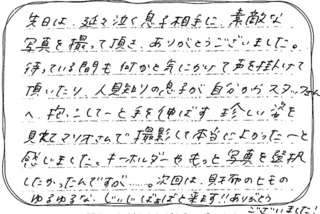 先日は、延々泣く息子相手に、素敵な
写真を撮って頂き、ありがとうございました。
待っている間も何かと気にかけて声を掛けて
頂いたり、人見知りの息子が自分からスタッフさん
へ、抱っこしてーと手を伸ばす珍しい姿を
見れてマリオさんで撮影して本当によかったーと
感じました。キーホルダーやもっと写真を選択
したかったんですが……。次回は、見本のヒモの
ゆるゆるな、じぃじばぁばと来ます!!ありがとう
ございました!